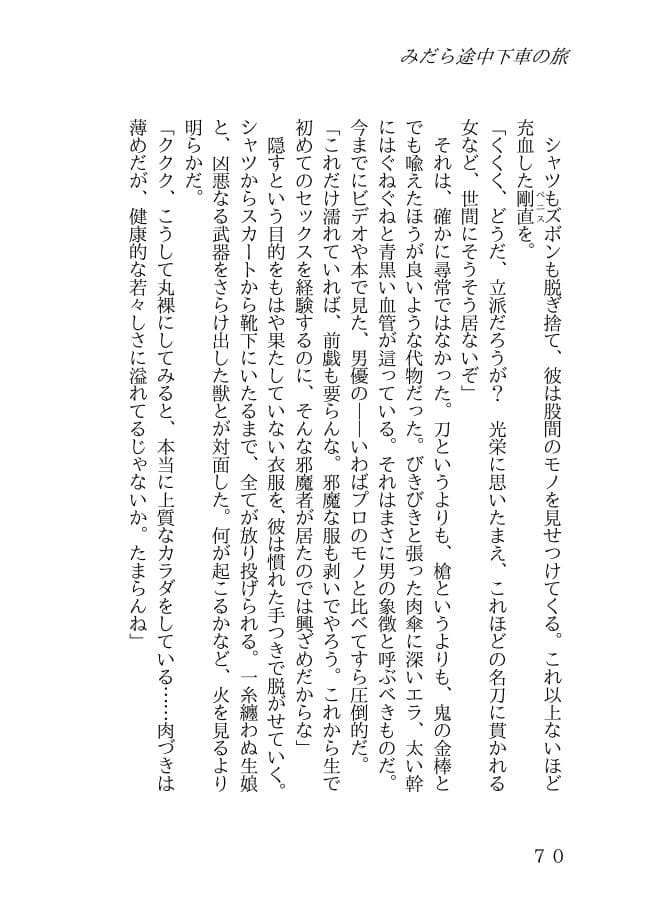 みだら途中下車の旅
シャツもズボンも脱ぎ捨て、彼は股間のモノを見せつけてくる。これ以上ないほど
充血した剛直を。
ペニス
「くくく、どうだ、立派だろうが?　光栄に思いたまえ、これほどの名刀に貫かれる
女など、世間にそうそう居ないぞ」
それは、確かに尋常ではなかった。刀というよりも、槍というよりも、鬼の金棒と
でも喩えたほうが良いような代物だった。びきびきと張った肉傘に深いエラ、太い幹
にはぐねぐねと青黒い血管が這っている。それはまさに男の象徴と呼ぶべきものだ。
今までにビデオや本で見た、男優の――いわばプロのモノと比べてすら圧倒的だ。
「これだけ濡れていれば、前戯も要らんな。邪魔な服も剥いでやろう。これから生で
初めてのセックスを経験するのに、そんな邪魔者が居たのでは興ざめだからな」
隠すという目的をもはや果たしていない衣服を、彼は慣れた手つきで脱がせていく。
シャツからスカートから靴下にいたるまで、全てが放り投げられる。一糸纏わぬ生娘
と、凶悪なる武器をさらけ出した獣とが対面した。何が起こるかなど、火を見るより
明らかだ。
「ククク、こうして丸裸にしてみると、本当に上質なカラダをしている……肉づきは
薄めだが、健康的な若々しさに溢れてるじゃないか。たまらんね」
７０